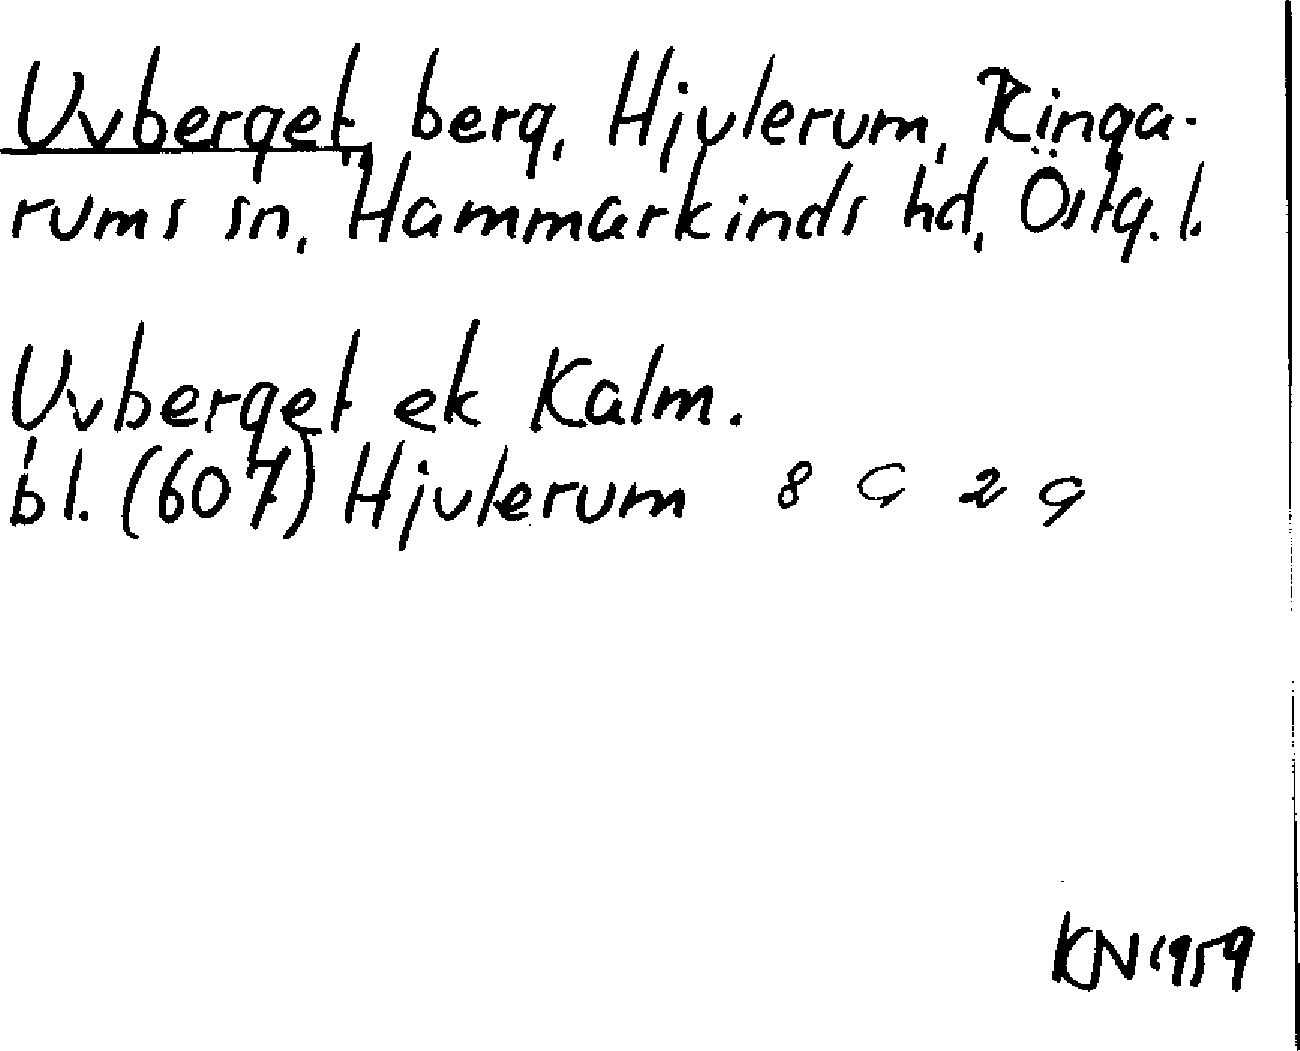 Uvberget, berg, Hjulerum, Ringa-
rums sn, Hammarkinds hd, Östg. l.
Uvberget ek Kalm.
bl. (607) Hjulerum 8 G 2 g
KN 1959